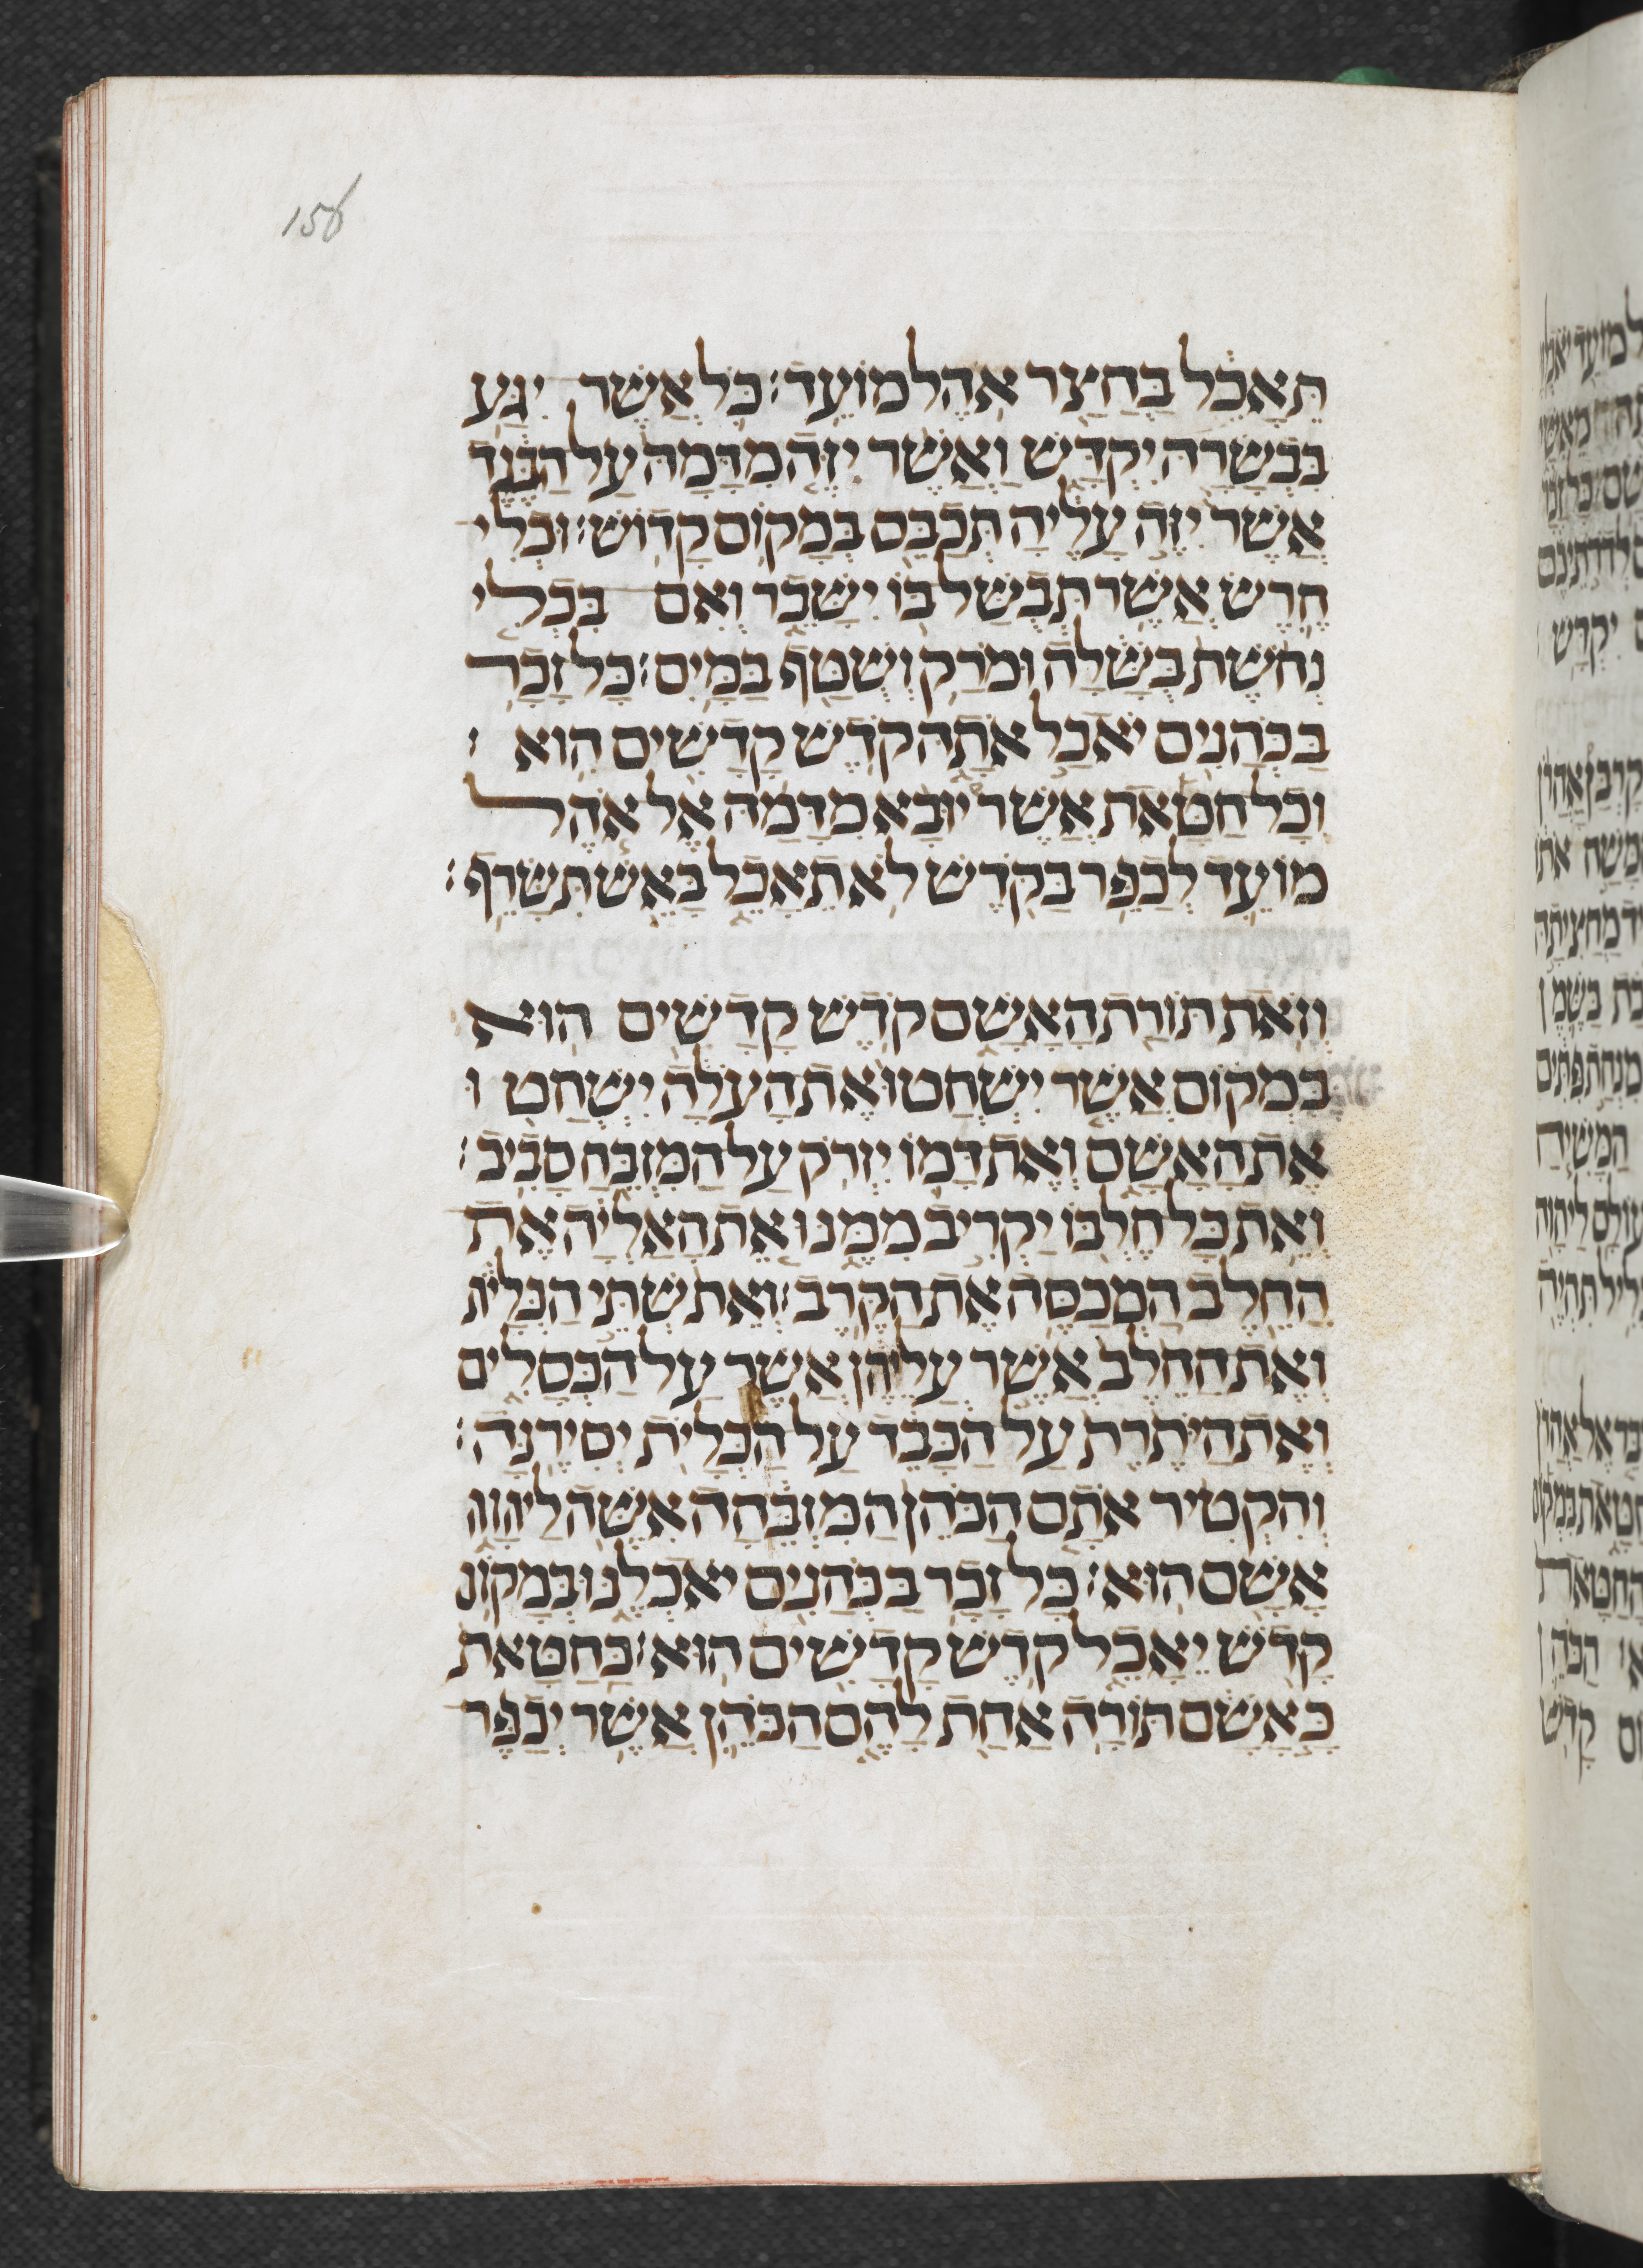 156
תֵּאָכֵל בַּחֲצַר אֹהֶל מוֹעֵד׃ כֹּל אֲשֶׁר יִגַּע
בִּבְשָׂרָהּ יִקְדָּשׁ וַאֲשֶׁר יִזֶּה מִדָּמָהּ עַל הַבֶּגֶד
אֲשֶׁר יִזֶּה עָלֶיהָ תְּכַבֵּס בְּמָקוֹם קָדוֹשׁ׃ וּכְלִי
חֶרֶשׂ אֲשֶׁר תְּבֻשַּׁל בּוֹ יִשָּׁבֵר וְאִם בִּכְלִי
נְחֹשֶׁת בֻּשָּׁלָה וּמֹרַק וְשֻׁטַּף בַּמָּיִם׃ כָּל זָכָר
בַּכֹּהֲנִים יֹאכַל אֹתָהּ קֹדֶשׁ קָדָשִׁים הִוא ׃
וְכָל חַטָּאת אֲשֶׁר יוּבָא מִדָּמָהּ אֶל אֹהֶל
מוֹעֵד לְכַפֵּר בַּקֹּדֶשׁ לֹא תֵאָכֵל בָּאֵשׁ תִּשָּׂרֵף׃
וְזֹאת תּוֹרַת הָאָשָׁם קֹדֶשׁ קָדָשִׁים הוּא
בִּמְקוֹם אֲשֶׁר יִשְׁחֲטוּ אֶת הָעֹלָה יִשְׁחֲט וּ
אֶת הָאָשָׁם וְאֶת דָּמוֹ יִזְרֹק עַל הַמִּזְבֵּחַ סָבִיב׃
וְאֵת כָּל חֶלְבּוֹ יַקְרִיב מִמֶּנּוּ אֵת הָאַלְיָה אֶת
הַחֵלֶב הַמְכַסֶּה אֶת הַקֶּרֶב׃ וְאֵת שְׁתֵּי הַכְּלָיֹת
וְאֶת הַחֵלֶב אֲשֶׁר עֲלֵיהֶן אֲשֶׁר עַל הַכְּסָלִים
וְאֶת הַיֹּתֶרֶת עַל הַכָּבֵד עַל הַכְּלָיֹת יְסִירֶנָּה׃
וְהִקְטִיר אֹתָם הַכֹּהֵן הַמִּזְבֵּחָה אִשֶּׁה לַיהוָה
אָשָׁם הוּא׃ כָּל זָכָר בַּכֹּהֲנִים יֹאכְלֶנּוּ בְּמָקוֹם
קָדֹשׁ יֵאָכֵל קֹדֶשׁ קָדָשִׁים הוּא׃ כַּחַטָּאת
כָּאָשָׁם תּוֹרָה אַחַת לָהֶם הַכֹּהֵן אֲשֶׁר יְכַפֶּר